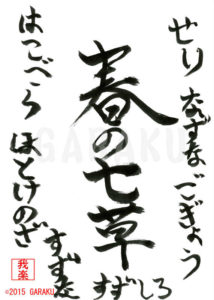 せり なずな ごぎょう
春の七草
はこべら ほとけのざ
すずな
すずしろ
GARAKU
我楽
©2015 GARAKU